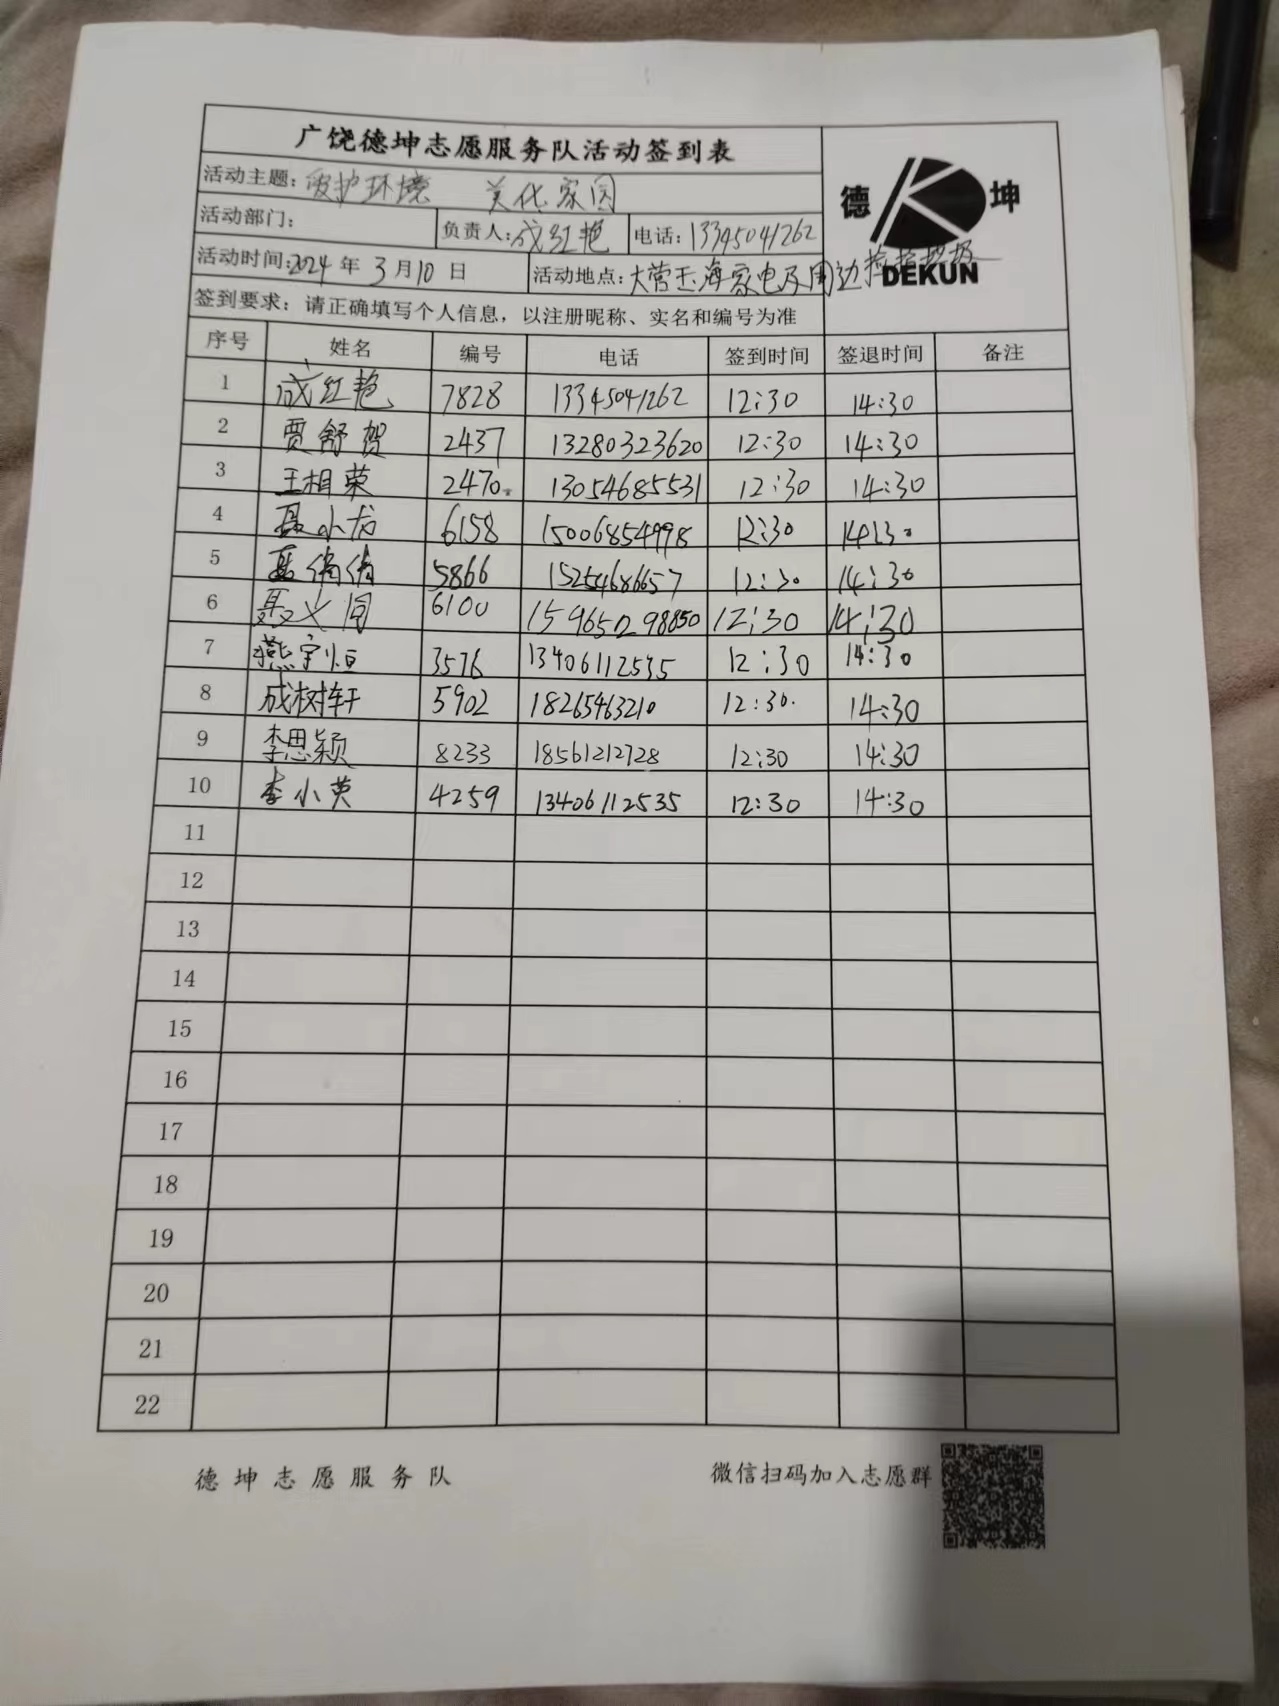 广饶德坤志愿服务队活动签到表
活动主题: 保护环境 美化家园
德 坤
活动部门: 负责人: 成红艳 电话: 13345041262
活动时间: 2024 年 3 月 10 日 活动地点: 大营玉海家电及周边捡拾垃圾
DEKUN
签到要求: 请正确填写个人信息, 以注册昵称、实名和编号为准
序号 姓名 编号 电话 签到时间 签退时间 备注
1 成红艳 7828 13345041262 12:30 14:30
2 贾舒贺 2437 13280323620 12:30 14:30
3 王相荣 2470 13054685531 12:30 14:30
4 聂小龙 6158 15006854998 12:30 14:30
5 聂倩倩 5866 15254686657 12:30 14:30
6 聂义同 6100 159650298850 12:30 14:30
7 燕宇恒 3576 13406112535 12:30 14:30
8 成树轩 5902 18265463210 12:30 14:30
9 李思颖 8233 18561212728 12:30 14:30
10 李小英 4259 13406112535 12:30 14:30
11
12
13
14
15
16
17
18
19
20
21
22
德坤志愿服务队 微信扫码加入志愿群